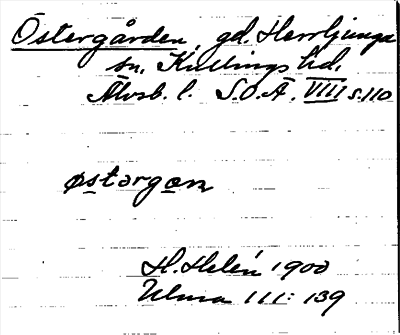 Östergården, gd. Herrljunga
sn, Kullings hd,
Älvsb. l. S.O.Ä. VIII s. 110
østərgan
H. Helén 1900
Ulma 111: 139